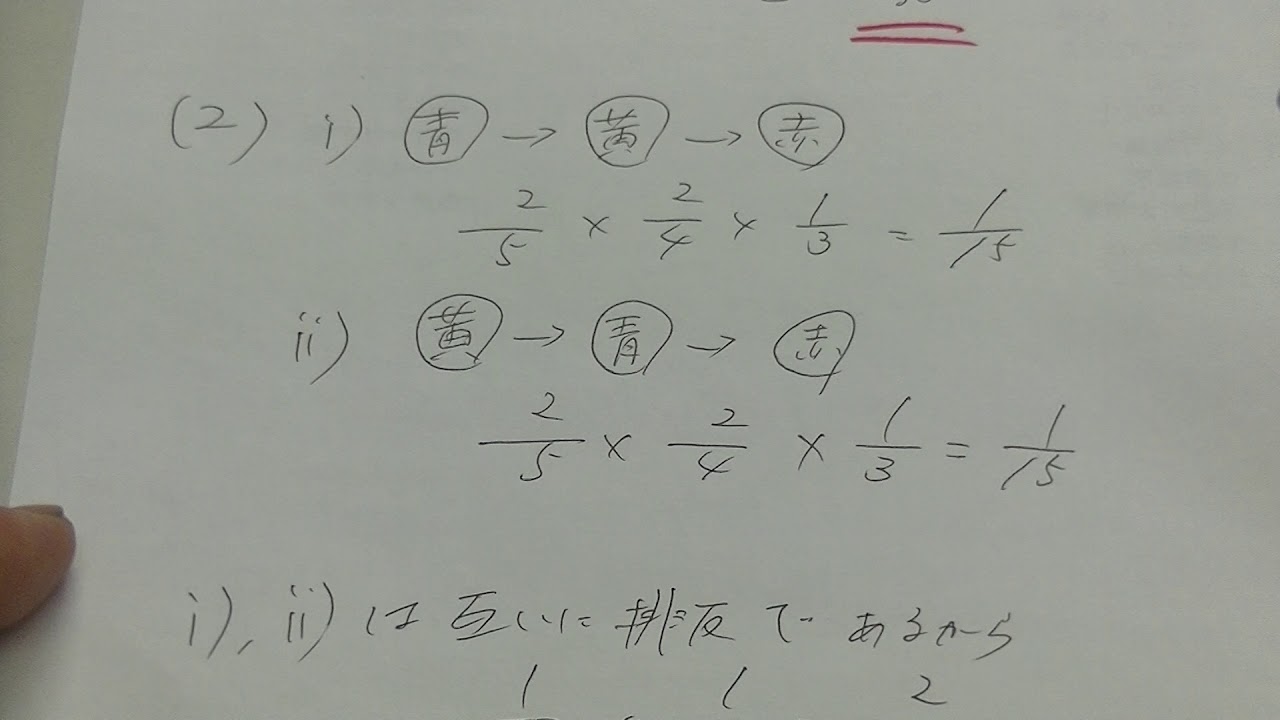 (2) i) 青 → 黄 → 赤
2/5 × 2/4 × 1/3 = 1/15
ii) 黄 → 青 → 赤
2/5 × 2/4 × 1/3 = 1/15
i), ii) は互いに排反であるから
1 1 2